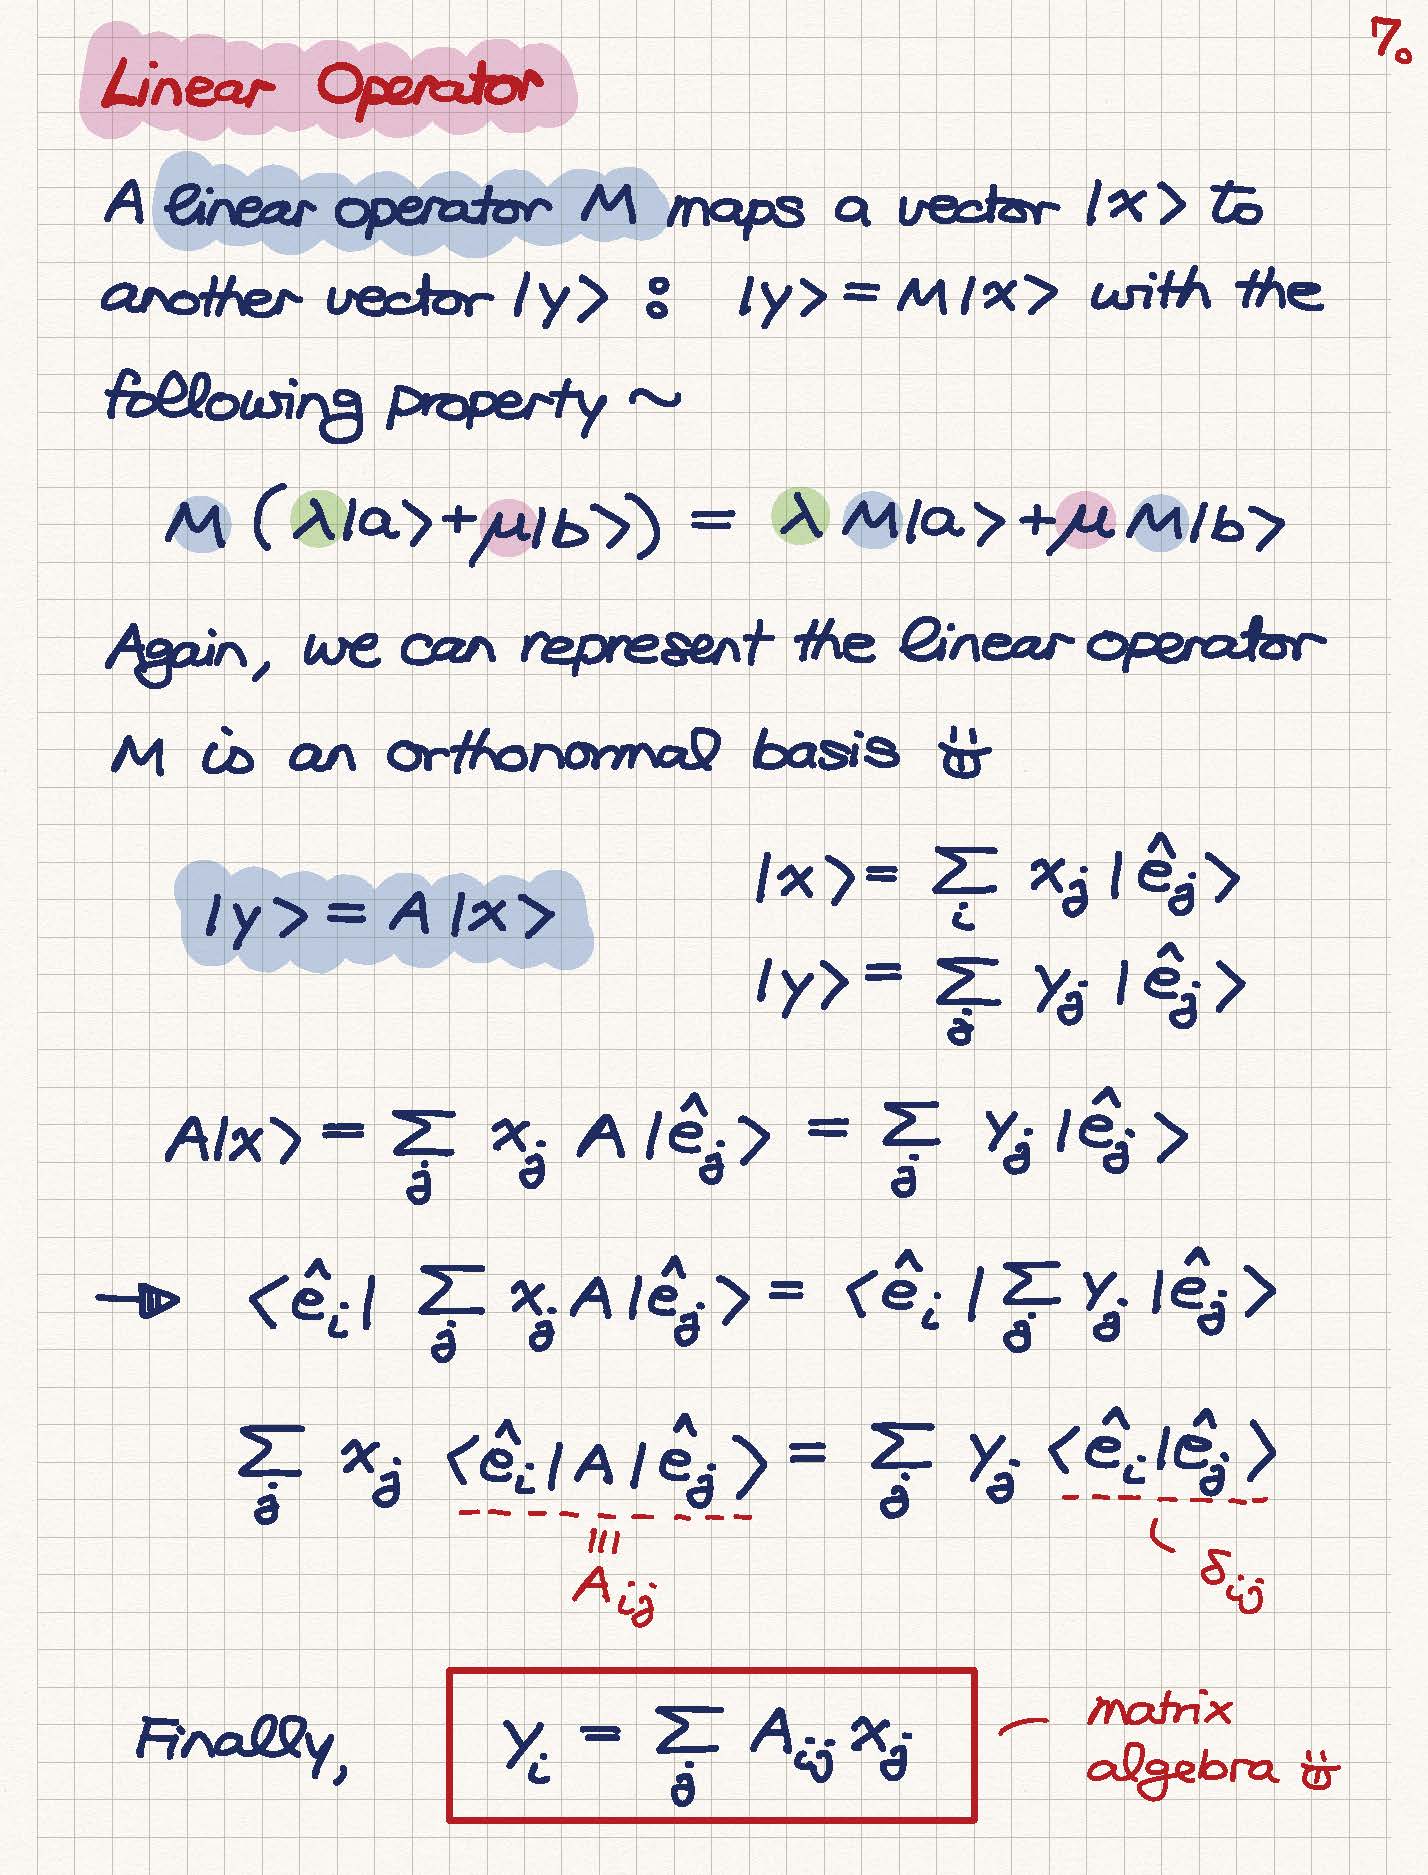 7.
Linear Operator
A linear operator M maps a vector |x> to
another vector |y> : |y> = M|x> with the
following property ~
M (λ|a>+μ|b>) = λ M|a>+μ M|b>
Again, we can represent the linear operator
M is an orthonormal basis
|y> = A|x>
|x> = Σ_i x_j |ê_j>
|y> = Σ_j y_j |ê_j>
A|x> = Σ_j x_j A|ê_j> = Σ_j y_j |ê_j>
→ <ê_i| Σ_j x_j A|ê_j> = <ê_i| Σ_j y_j |ê_j>
Σ_j x_j <ê_i|A|ê_j> = Σ_j y_j <ê_i|ê_j>
≡
A_ij
δ_ij
Finally, y_i = Σ_j A_ij x_j
matrix
algebra